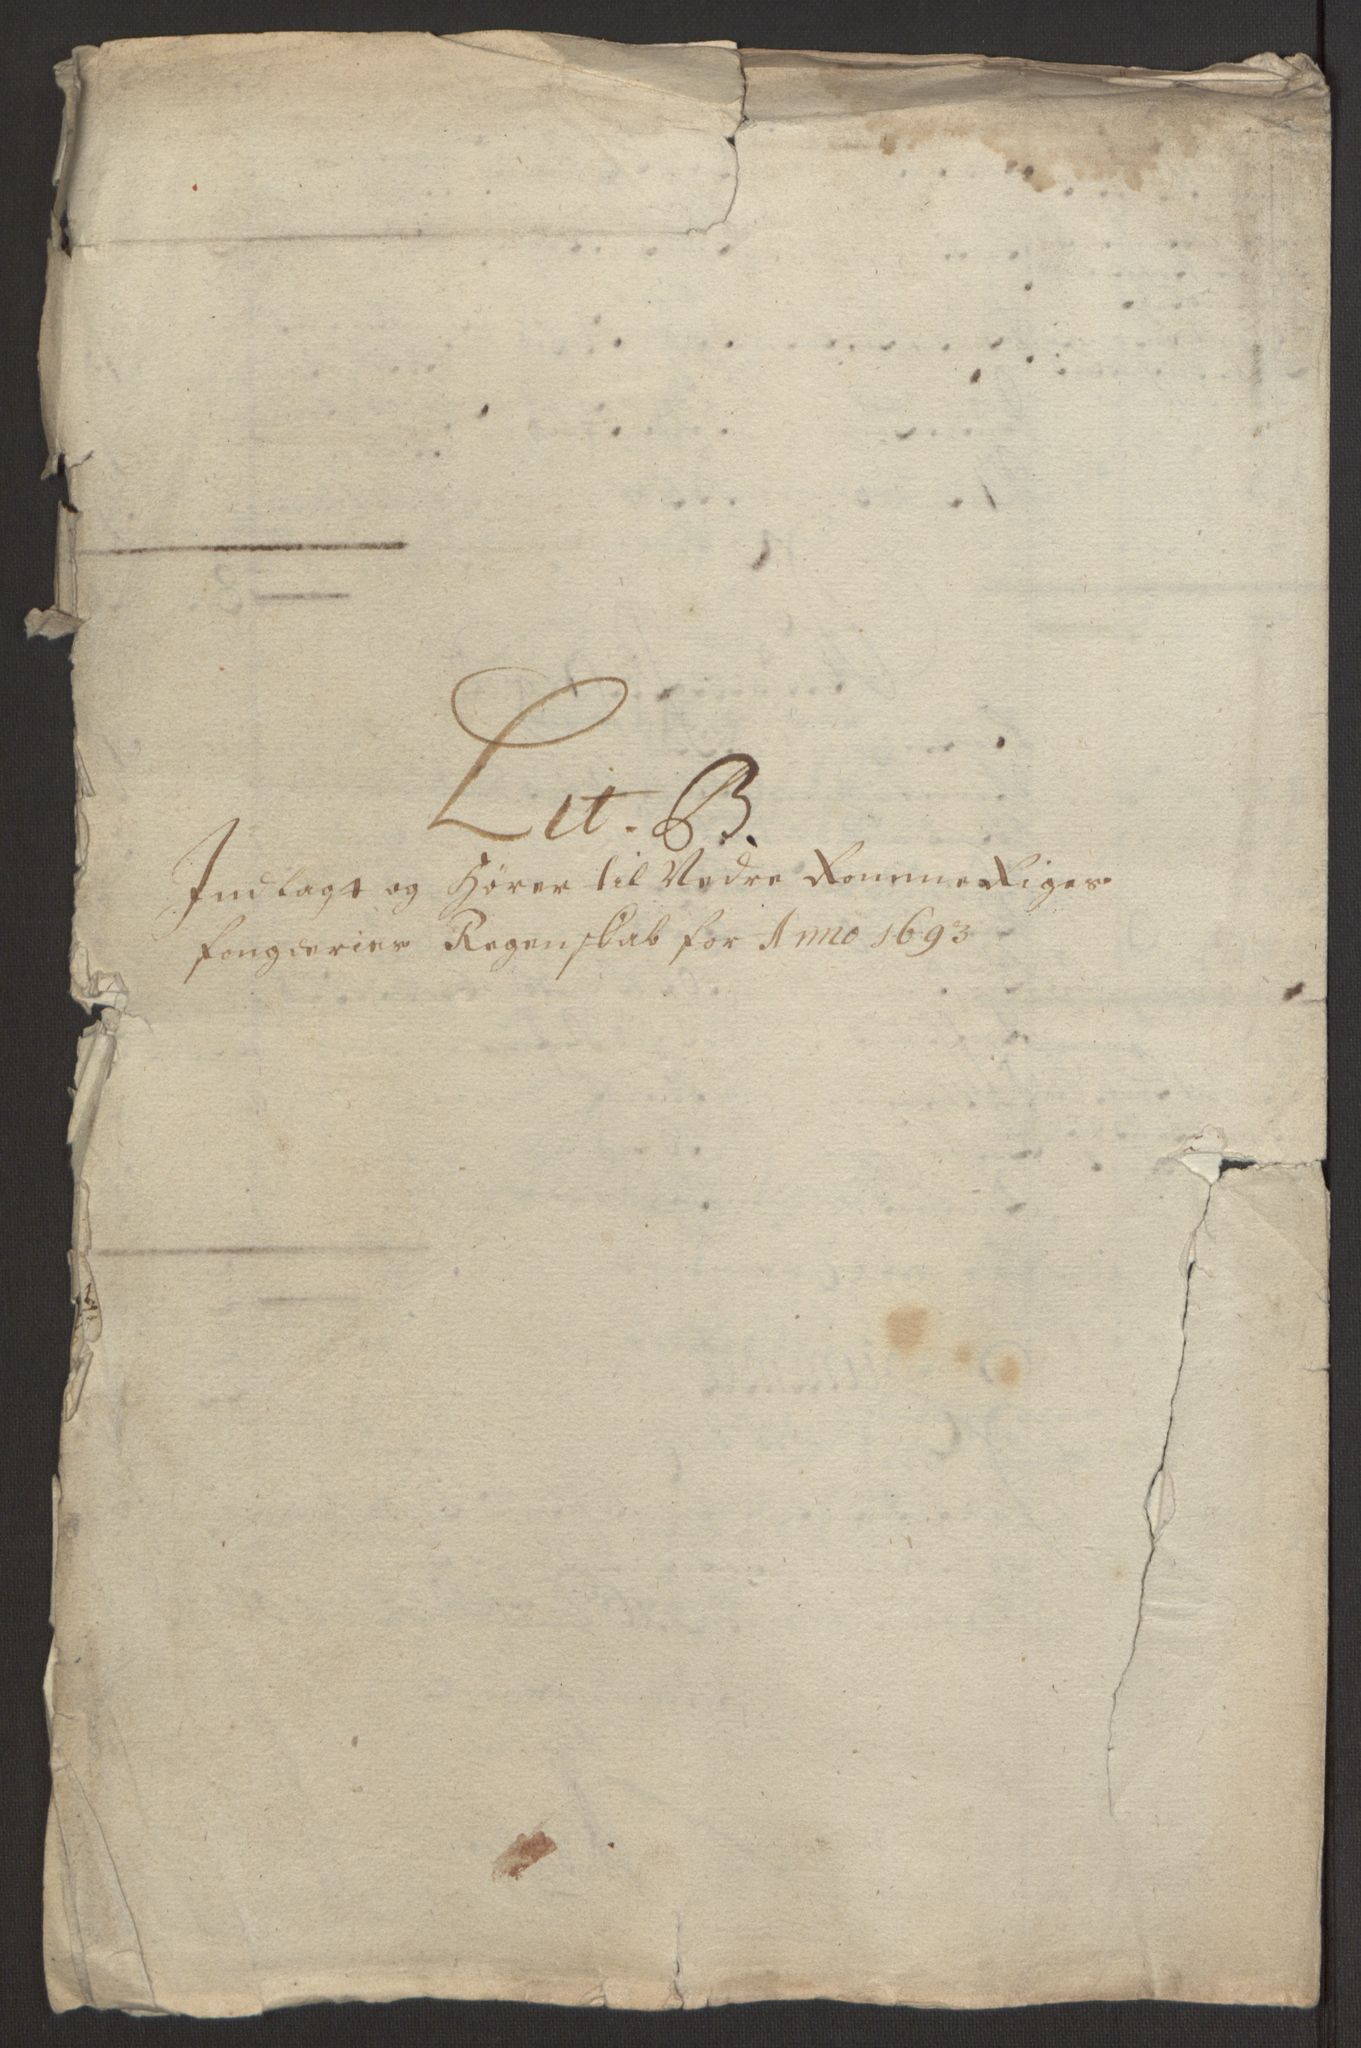 Lit. B.
Indlagt og Hører til Nedre Rommerriges
fongderies Regenskab for Anno 1693